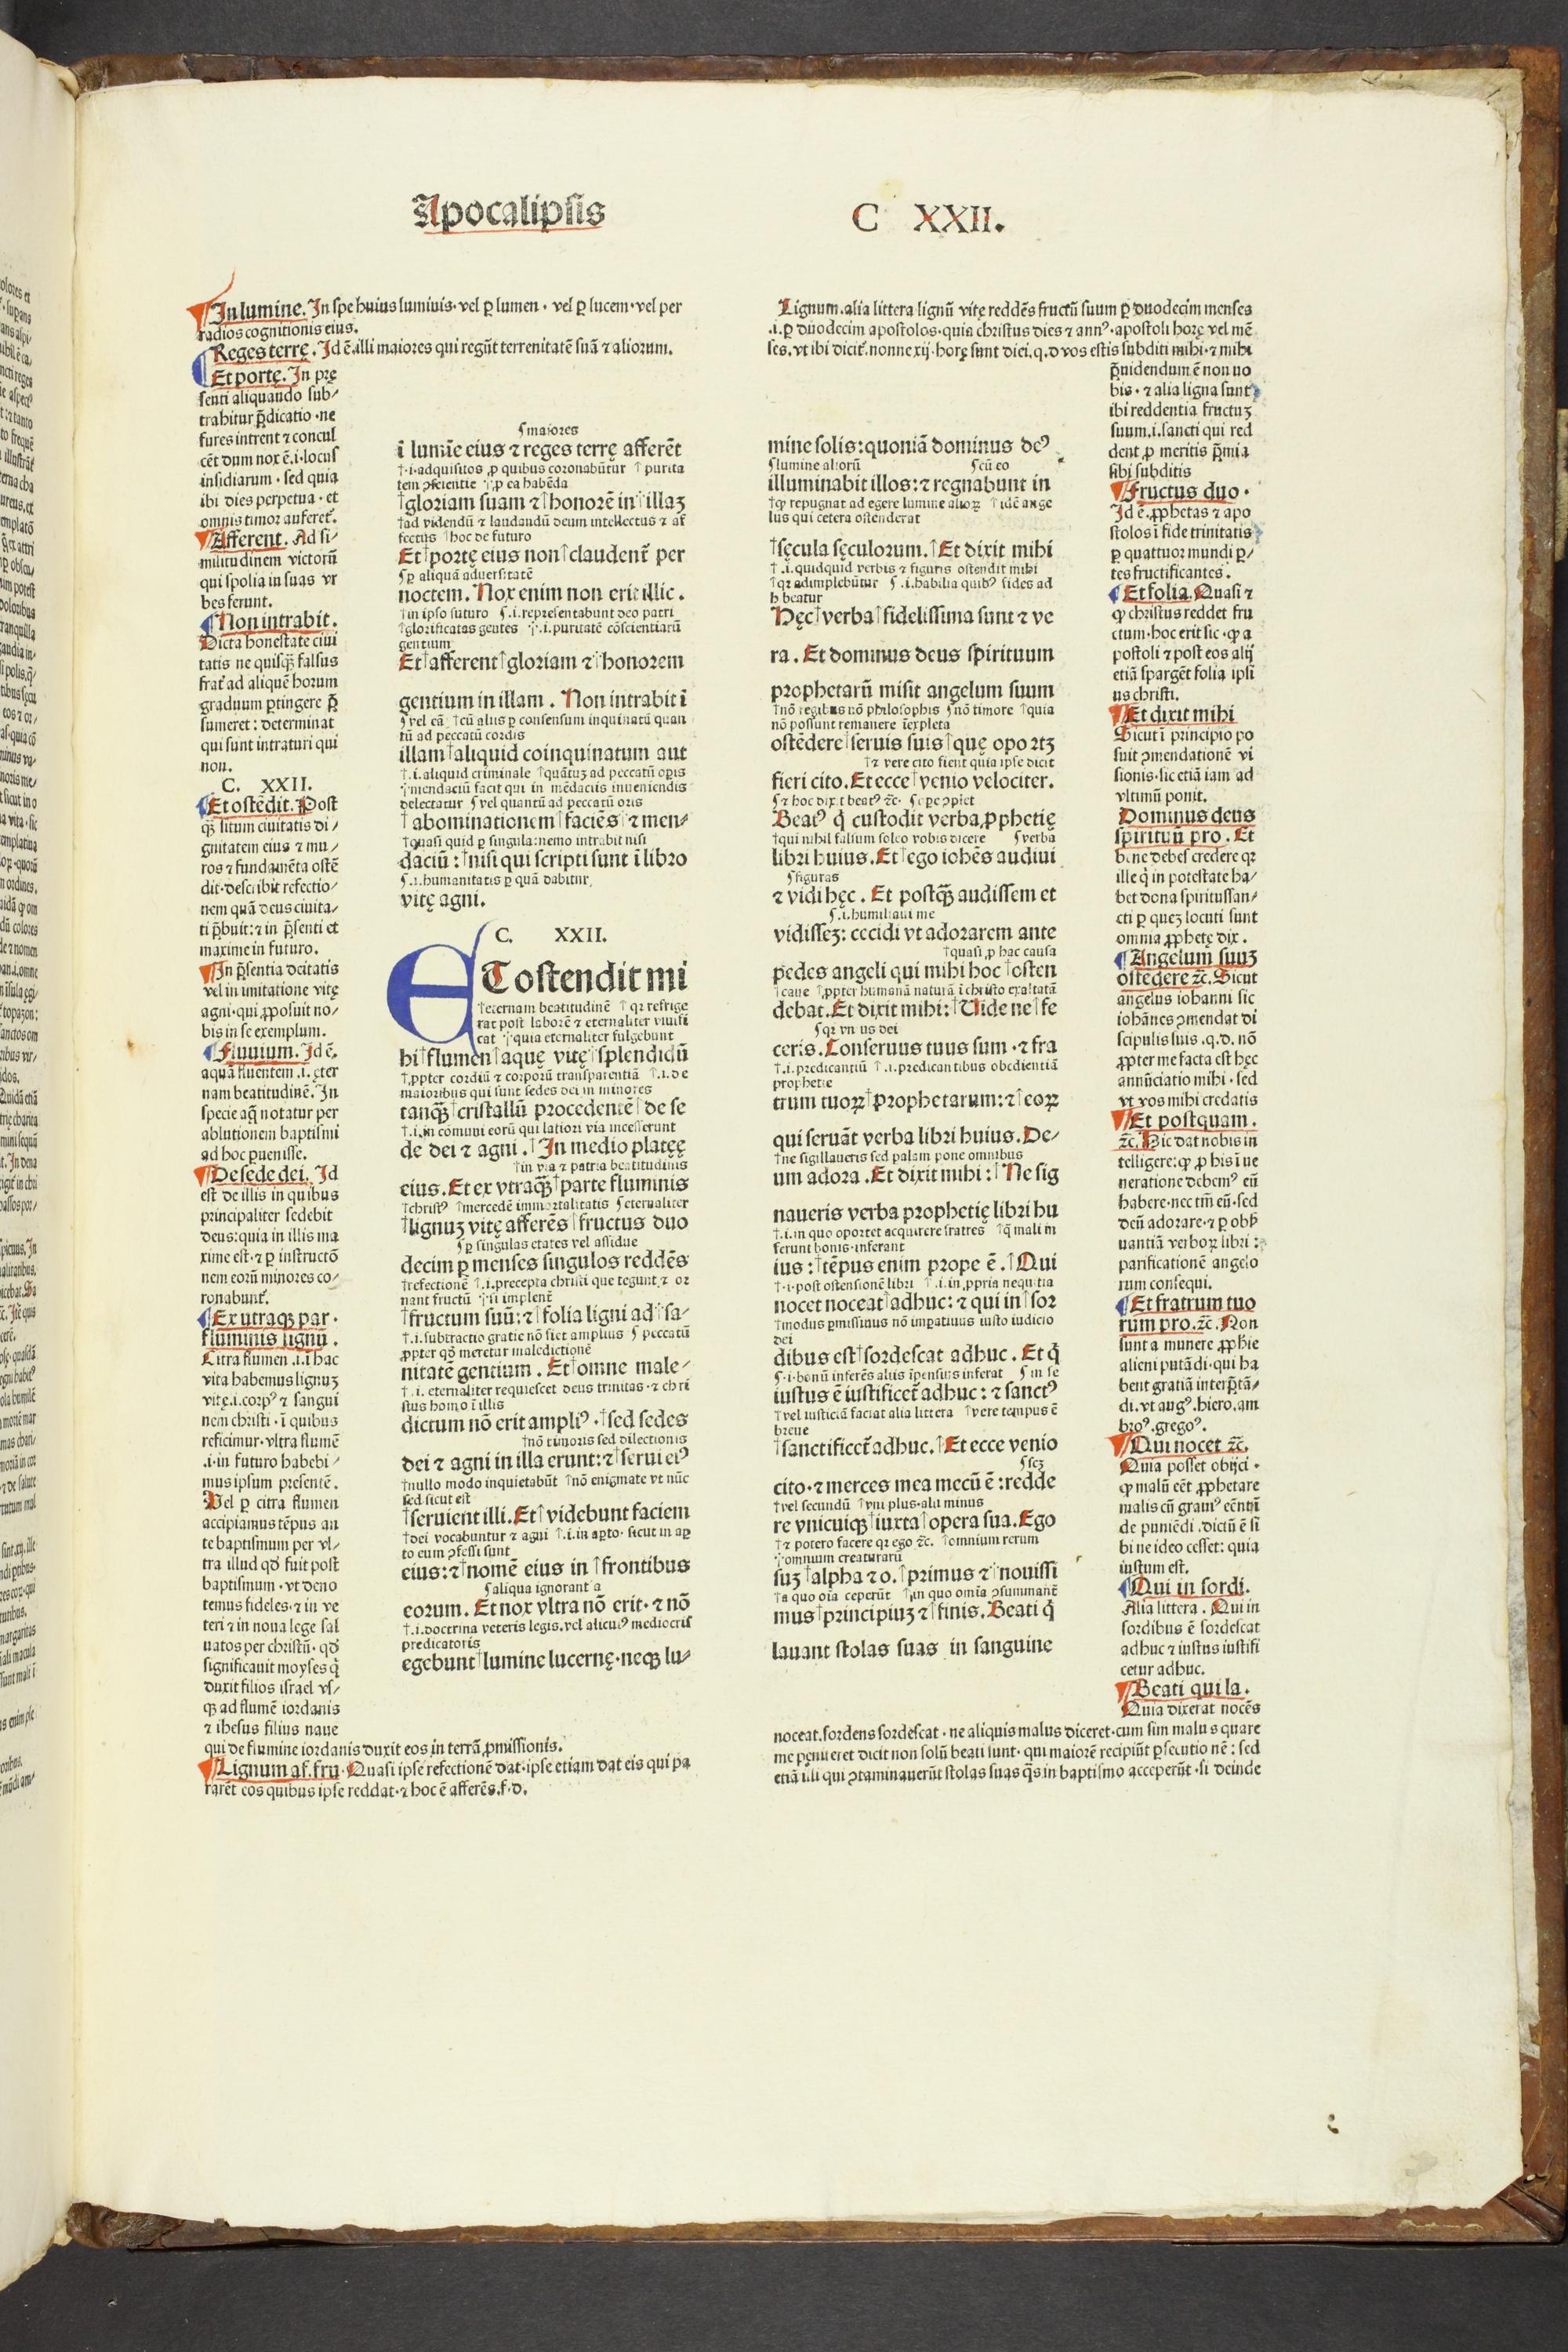 Apocalipsis
C XXII.
In lumine. In spe huius lumiuis· vel ꝑ lumen · vel ꝑ lucem· vel per
radios cognitionis eius.
Reges terrę. Id ē. illi maiores qui regūt terrenitatē suā ⁊ aliorum.
Et portę. In prę
senti aliquando sub/
trabitur p̄dicatio ·ne
fures intrent ⁊ concul
cēt dum nox ē.i·locus
insidiarum · sed quia
ibi dies perpetua · et
omnis timor auferet᷑.
Afferent. Ad si/
militudinem victorū
qui spolia in suas vr
bes ferunt.
Non intrabit.
Dicta honestate ciui
tatis ne quisq̄ȝ falsus
frat᷑ ad aliquē horum
graduum ꝑtingere p̄
sumeret : determinat
qui sunt intraturi qui
non.
C. XXII.
Et ostēdit. Post
q̄ȝ situm ciuitatis di /
gnitatem eius ⁊ mu /
ros ⁊ fundamēta ostē
dit·describit refectio/
nem quā deus ciuita/
ti p̄buit: ⁊ in p̄senti et
maxime in futuro.
In p̄sentia dcitatis
vel in imitatione vitę
agni·qui ꝓposuit no/
bis in se exemplum.
Fluuium. Id ē.
aquā fluentem .i. ęter
nam beatitudinē. In
specie aq̄ notatur per
ablutionem baptismi
ad hoc puenisse.
De sede dei. Id
est de illis in quibus
principaliter sedebit
deus: quia in illis ma
xime est·⁊ ꝑ instructō
nem eorū minores co/
ronabunt᷑.
Ex utraqȝ par·
fluminis lignū.
Citra flumen .i. ī hac
vita habemus lignuȝ
vitę.i.corpꝰ ⁊ sangui
nem christi · ī quibus
reficimur·vltra flumē
.i·in futuro habebi/
mus ipsum presentē.
Vel ꝑ citra flumen
accipiamus tēpus an
te baptismum per vl/
tra illud qd̄ fuit post
baptismum · vt deno
temus fideles·⁊ in ve
teri ⁊ in noua lege sal
uatos per christū· qd̄
significauit moyses q̄
duxit filios israel vs/
qȝ ad flumē iordanis
⁊ ihesus filius naue
qui de flumine iordanis duxit eos in terrā ꝓmissionis.
Lignum af. fru· Quasi ipse refectionē dat·ipse etiam dat eis qui pa
rarēt eos quibus ipse reddat·⁊ hoc ē afferēs.f·d.
maiores
ī lumīe eius ⁊ reges terrę afferēt
†·i·adquisitos ꝓ quibus coronabūtur † purita
tem ɔscientie ꝓ ea habēda
†gloriam suam ⁊†honorē in illaȝ
†ad videndū ⁊ laudandū deum intellectus ⁊ af
fectus †hoc de futuro
Et†portę eius non†claudent᷑ per
ꝑ aliquā aduersitatē
noctem. Nox enim non erit illic.
†in ipso futuro .i.representabunt deo patri
†glorificatas gentes .i.puritatē cōscientiarū
gentium
Et†afferent†gloriam ⁊ honorem
gentium in illam . Non intrabit ī
vel eā †cū aliis ꝑ consensum inquinatū quan
tū ad peccatū cordis
illam†aliquid coinquinatum aut
†.i.aliquid criminale †quātuȝ ad peccatū oꝑis
mendaciū facit qui in mēdaciis inueniendis
delectatur vel quantū ad peccatū oris
†abominationem†faciēs ⁊ men/
†quasi quid ꝑ singula:nemo intrabit nisi
daciū : †nisi qui scripti sunt ī libro
.i.humanitatis ꝑ quā dabitur
vitę agni.
C. XXII.
ET ostendit mi
†eternam beatitudinē †qꝛ refrige
rat post laborē ⁊ eternaliter viuifi
cat quia eternaliter fulgebunt
hi†flumen†aquę vitę†splendidū
†.ꝓpter cordiū ⁊ corporū transparentiā †.i.de
maioribus qui sunt sedes dei in minores
tanqȝ†cristallū procedentē†de se
†.i.in cōmuni eorū qui latiori via incesserunt
de dei ⁊ agni . †In medio plateę
†in via ⁊ patria beatitudinis
eius. Et ex vtraqȝ†parte fluminis
†christꝰ †mercedē immortalitatis eternaliter
†lignuȝ vitę afferēs†fructus duo
ꝑ singulas etates vel assidue
decim ꝑ menses singulos reddēs
†refectionē †.i.precepta christi que tegunt ⁊ or
nant fructū ii implent᷑
†fructum suū:⁊†folia ligni ad†sa/
†.i.subtractio gratie nō fiet amplius peccatū
ꝓpter qd̄ meretur maledictionē
nitatē gentium . Et†omne male/
†.i. eternaliter requiescet deus trinitas·⁊ chri
stus homo ī illis
dictum nō erit ampliꝰ ·†sed sedes
†nō timoris sed dilectionis
dei ⁊ agni in illa erunt:⁊†serui eiꝰ
†nullo modo inquietabūt †nō enigmate vt nūc
sed sicut est
†seruient illi. Et†videbunt faciem
†dei vocabuntur ⁊ agni †.i.in aꝑto· sicut in aꝑ
to eum ɔfessi sunt
eius:⁊†nomē eius in †frontibus
aliqua ignorantia
eorum. Et nox vltra nō erit·⁊ nō
†.i.doctrina veteris legis.vel alicuiꝰ mediocris
predicatoris
egebunt†lumine lucernę·neqȝ lu/
Lignum.alia littera lignū vitę reddēs fructū suum ꝑ duodecim menses
.i.ꝑ duodecim apostolos·quia christus dies ⁊ annꝰ·apostoli horę vel mē
ses.vt ibi dicit᷑.nonne xij·horę sunt diei.q.d vos estis subditi mihi·⁊ mihi
mine solis: quoniā dominus deꝰ
lumine aliorū cū eo
illuminabit illos:⁊ regnabunt in
†qꝙ repugnat ad egere lumine alioꝝ †idē ange
lus qui cetera ostenderat
†sęcula sęculorum.†Et dixit mihi
†.i.quidquid verbis ⁊ figuris ostendit mihi
†qꝛ adimplebūtur .i.habilia quibꝰ fides ad
hbeatur
Hęc†verba†fidelissima sunt ⁊ ve
ra . Et dominus deus spirituum
prophetarū misit angelum suum
†nō regibus nō philosophis nō timore †quia
nō possunt remanere īexpleta
ostēdere†seruis suis†quę oportȝ
†⁊ vere cito fient quia ipse dicit
fieri cito. Et ecce†venio velociter.
⁊ hoc dixit beatꝰ ⁊c̄·
Beatꝰ q̄ custodit verba ꝓphetię
†qui nihil falsum soleo vobis dicere verba
libri huius. Et†ego iohēs audiui
figuras
⁊ vidi hęc . Et postqȝ audissem et
.i.humiliaui me
vidisseȝ: cecidi vt adorarem ante
†quasi ꝓ hac causa
pedes angeli qui mihi hoc †osten
†caue †ꝓpter humanā naturā ī christo exaltatā
debat. Et dixit mihi:†Vide ne†fe
qꝛ vnius dei
ceris. Conseruus tuus sum ·⁊ fra
†.i.predicantiū †.i.predicantibus obedientiā
prophetie
trum tuoꝝ†prophetarum:⁊†eoꝝ
qui seruāt verba libri huius. De/
†ne sigillaueris sed palam pone omnibus
um adora . Et dixit mihi :†Ne sig
naueris verba prophetię libri hu
†.i.in quo oportet acquirere fratres †q̄ mali in
ferunt bonis·inferant
ius :†tēpus enim prope ē . †Qui
†·i·post ostensionē libri †.i.in ꝓpria nequitia
nocet noceat†adhuc: ⁊ qui in†sor
†modus ꝑmissiuus nō imꝑatiuus iusto iudicio
dei
dibus est†sordescat adhuc . Et q̄
.i.bonū inferēs aliis īpensius inferat in se
iustus ē iustificet᷑ adhuc : ⁊ sanctꝰ
†vel iusticiā faciat alia littera †vere tempus ē
breue
†sanctificet᷑ adhuc.†Et ecce venio
sez
cito·⁊ merces mea mecū ē :redde
†vel secundū †vni plus·alii minus
re vnicuiqȝ†iuxta†opera sua. Ego
†⁊ potero facere qꝛ ego ⁊c̄. †omnium rerum
omnium creaturarū
suȝ†alpha ⁊ o.†primus ⁊ nouissi
†a quo oīa ceperūt †in quo omīa ɔsummant᷑
mus†principiuȝ ⁊†finis. Beati q̄
lauant stolas suas in sanguine
p̄uidendum ē non uo
bis · ⁊ alia ligna sunt
ibi reddentia fructuȝ
suum.i.sancti qui red
dent ꝓ meritis p̄mia
sibi subditis
Fructus duo·
Id ē. ꝓphetas ⁊ apo
stolos ī fide trinitatis
ꝑ quattuor mundi ꝑ/
tes fructificantes.
Et folia. Quasi ⁊
ꝙ christus reddet fru
ctum·hoc erit sic·ꝙ a
postoli ⁊ post eos alij
etiā spargēt folia ipsi
us christi.
Et dixit mihi
Sicut ī principio po
suit ɔmendationē vi
sionis·sic etiā iam ad
vltimū ponit.
Dominus deus
spirituū pro . Et
bene debes credere qꝛ
ille q̄ in potestate ha/
bet dona spiritussan/
cti ꝑ queȝ locuti sunt
omnia ꝓphetę dix.
Angelum suuȝ
ostēdere ⁊c̄. Sicut
angelus iohanni sic
iohānes ɔmendat di
scipulis suis .q.d. nō
ꝓpter me facta est hęc
annūciatio mihi · sed
vt vos mihi credatis
Et postquam.
⁊c̄. Hic dat nobis in
telligere:ꝙ ꝓ his ī ue
neratione debemꝰ eū
habere·nec tm̄ eū·sed
deū adorare·⁊ ꝑ obẜ
uantiā verboꝝ libri :
parificationē angelo
rum consequi.
Et fratrum tuo
rum pro.⁊c̄. Non
sunt a munere ꝓphie
alieni putādi·qui ha
bent gratiā interp̄tā/
di.vt augꝰ.hiero.am
broꝰ.gregoꝰ.
Qui nocet ⁊c̄.
Quia posset obijci·
ꝙ malū eēt ꝓphetare
malis cū grauꝰ eēnt
de puniēdi.dictū ē si
bi ne ideo cesset: quia
iustum est.
Qui in sordi.
Alia littera . Qui in
sordibus ē sordescat
adhuc ⁊ iustus iustifi
cetur adhuc.
Beati qui la.
Quia dixerat nocēs
noceat.sordens sordescat·ne aliquis malus diceret·cum sim malus quare
me pęniteret dicit non solū beati sunt· qui maiorē recipiūt ꝑsecutionē : sed
etiā illi qui ɔtaminauerūt stolas suas q̄s in baptismo acceperūt·si deinde